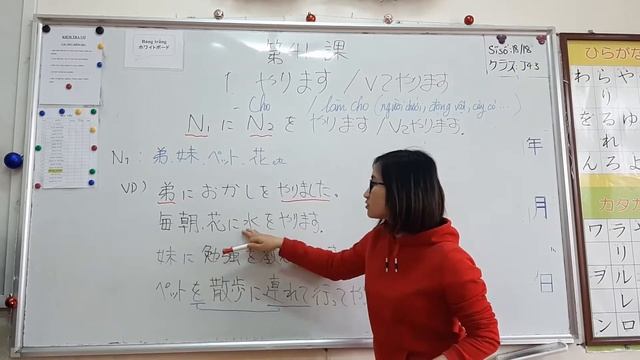 KIỂM TRA CŨ
Bảng trắng
ホワイトボード
第41課
Sĩ số: 18/18
クラス: J43
1. やります / Vてやります
- Cho / làm cho (người dưới, động vật, cây cỏ...)
N1 に N2 を やります / Vてやります.
N1: 弟、妹、ペット、花 etc
VD) 弟におかしをやりました。
毎朝、花に水をやります。
妹に勉強を
ペットを散歩に連れて行ってや
年
月
日
ひらがな
わらや
り
をるゆ
れ
んろよ
カタカ
ワラ
リ
ヲル
レ
ンロ